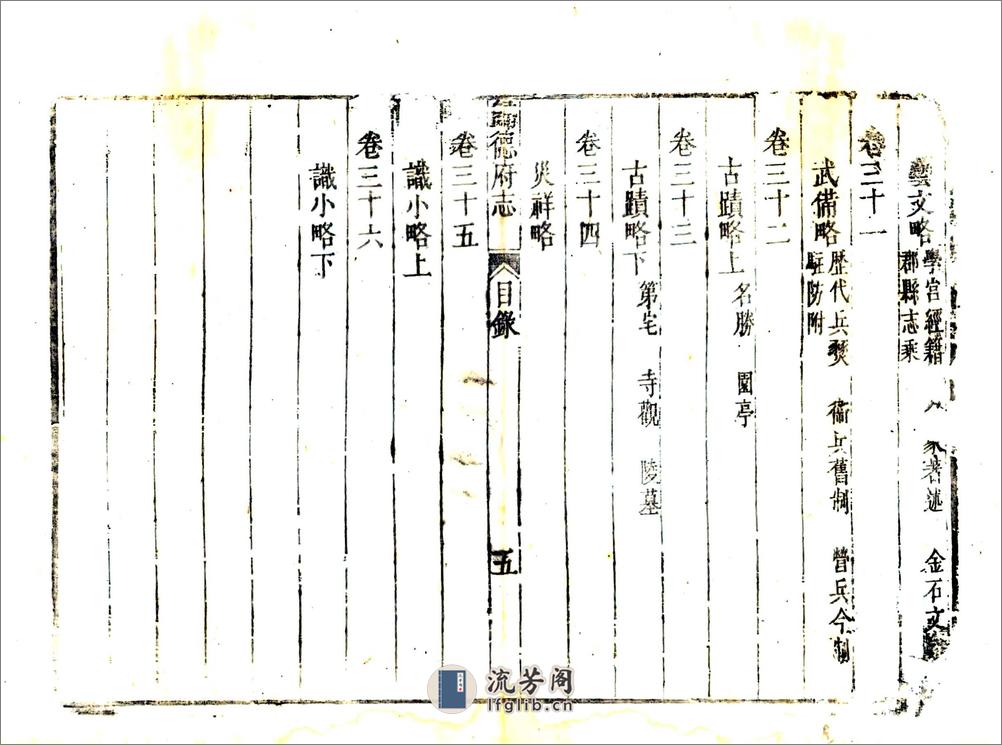 藝文略 學宮經籍 家著述 金石文
郡縣志乘
卷三十一
武備略 歷代兵燹 衞兵舊制 營兵今制
駐防附
卷三十二
古蹟略上 名勝 園亭
卷三十三
古蹟略下 第宅 寺觀 陵墓
卷三十四
災祥略
德府志 目錄 五
卷三十五
識小略上
卷三十六
識小略下
流芳阁
lfglib.cn